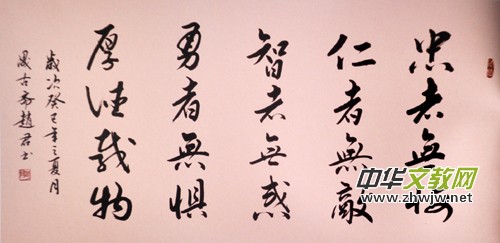 忠者無悔
仁者無敵
智者无惑
勇者無懼
厚德載物
歲次癸巳年之夏月
古齋趙君書
中华文教网
www.zhwjw.net